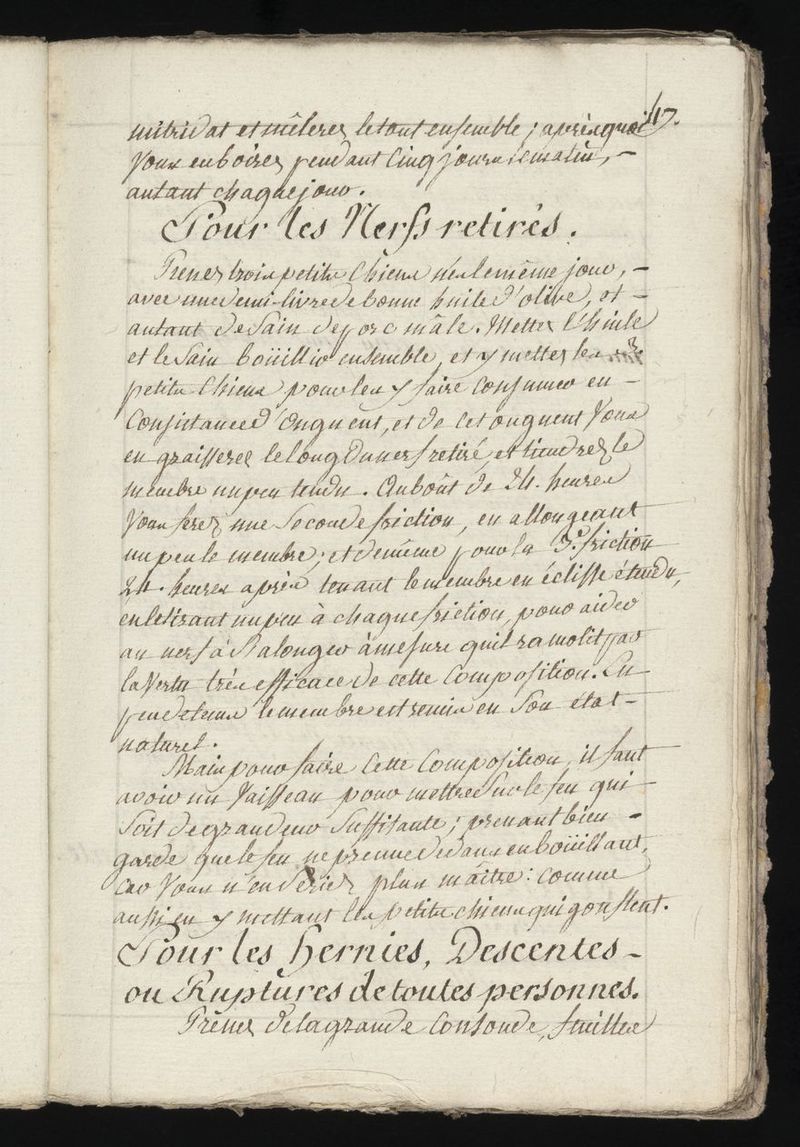 117.
mitridat et mêlerez le tout ensemble ; après quoi
Vous en boirez pendant Cinq jours le matin, –
autant chaque jour.
Pour les Nerfs retirés.
Prenez trois petits Chiens nés le même jour, –
avec une demi-livre de bonne huile d'olive, et –
autant de Sain de porc mâle. Mettez l'huile
et le Sain boüillir ensemble, et y mettez les 3
petits Chiens pour les y faire Consumer en –
Consistance d'Onguent, et de cet onguent Vous
en graisserez le long du nerf retiré, et tiendrez le
membre un peu tendu. Au bout de 24. heures
Vous ferez une Seconde friction, en allongeant
un peu le membre ; et de même pour la 3.e friction
24. heures après tenant le membre en éclisse étendu,
en le tirant un peu à chaque friction, pour aider
au nerf à Ralonger à mesure qu'il ramolit par
la Vertu très efficace de cette Composition. En
peu de tems le membre est remis en Son état –
naturel.
Mais pour faire Cette Composition, il faut
avoir un Vaisseau pour mettre Sur le feu qui
Soit de grandeur Suffisante ; prenant bien –
garde que le feu ne prenne dedans en boüillant,
car Vous n'en seriez plus maître : comme
aussi en y mettant les petits chiens qui gonflent.
Pour les hernies, Descentes –
ou Ruptures de toutes personnes.
Prenez de la grande Consoude, feuilles